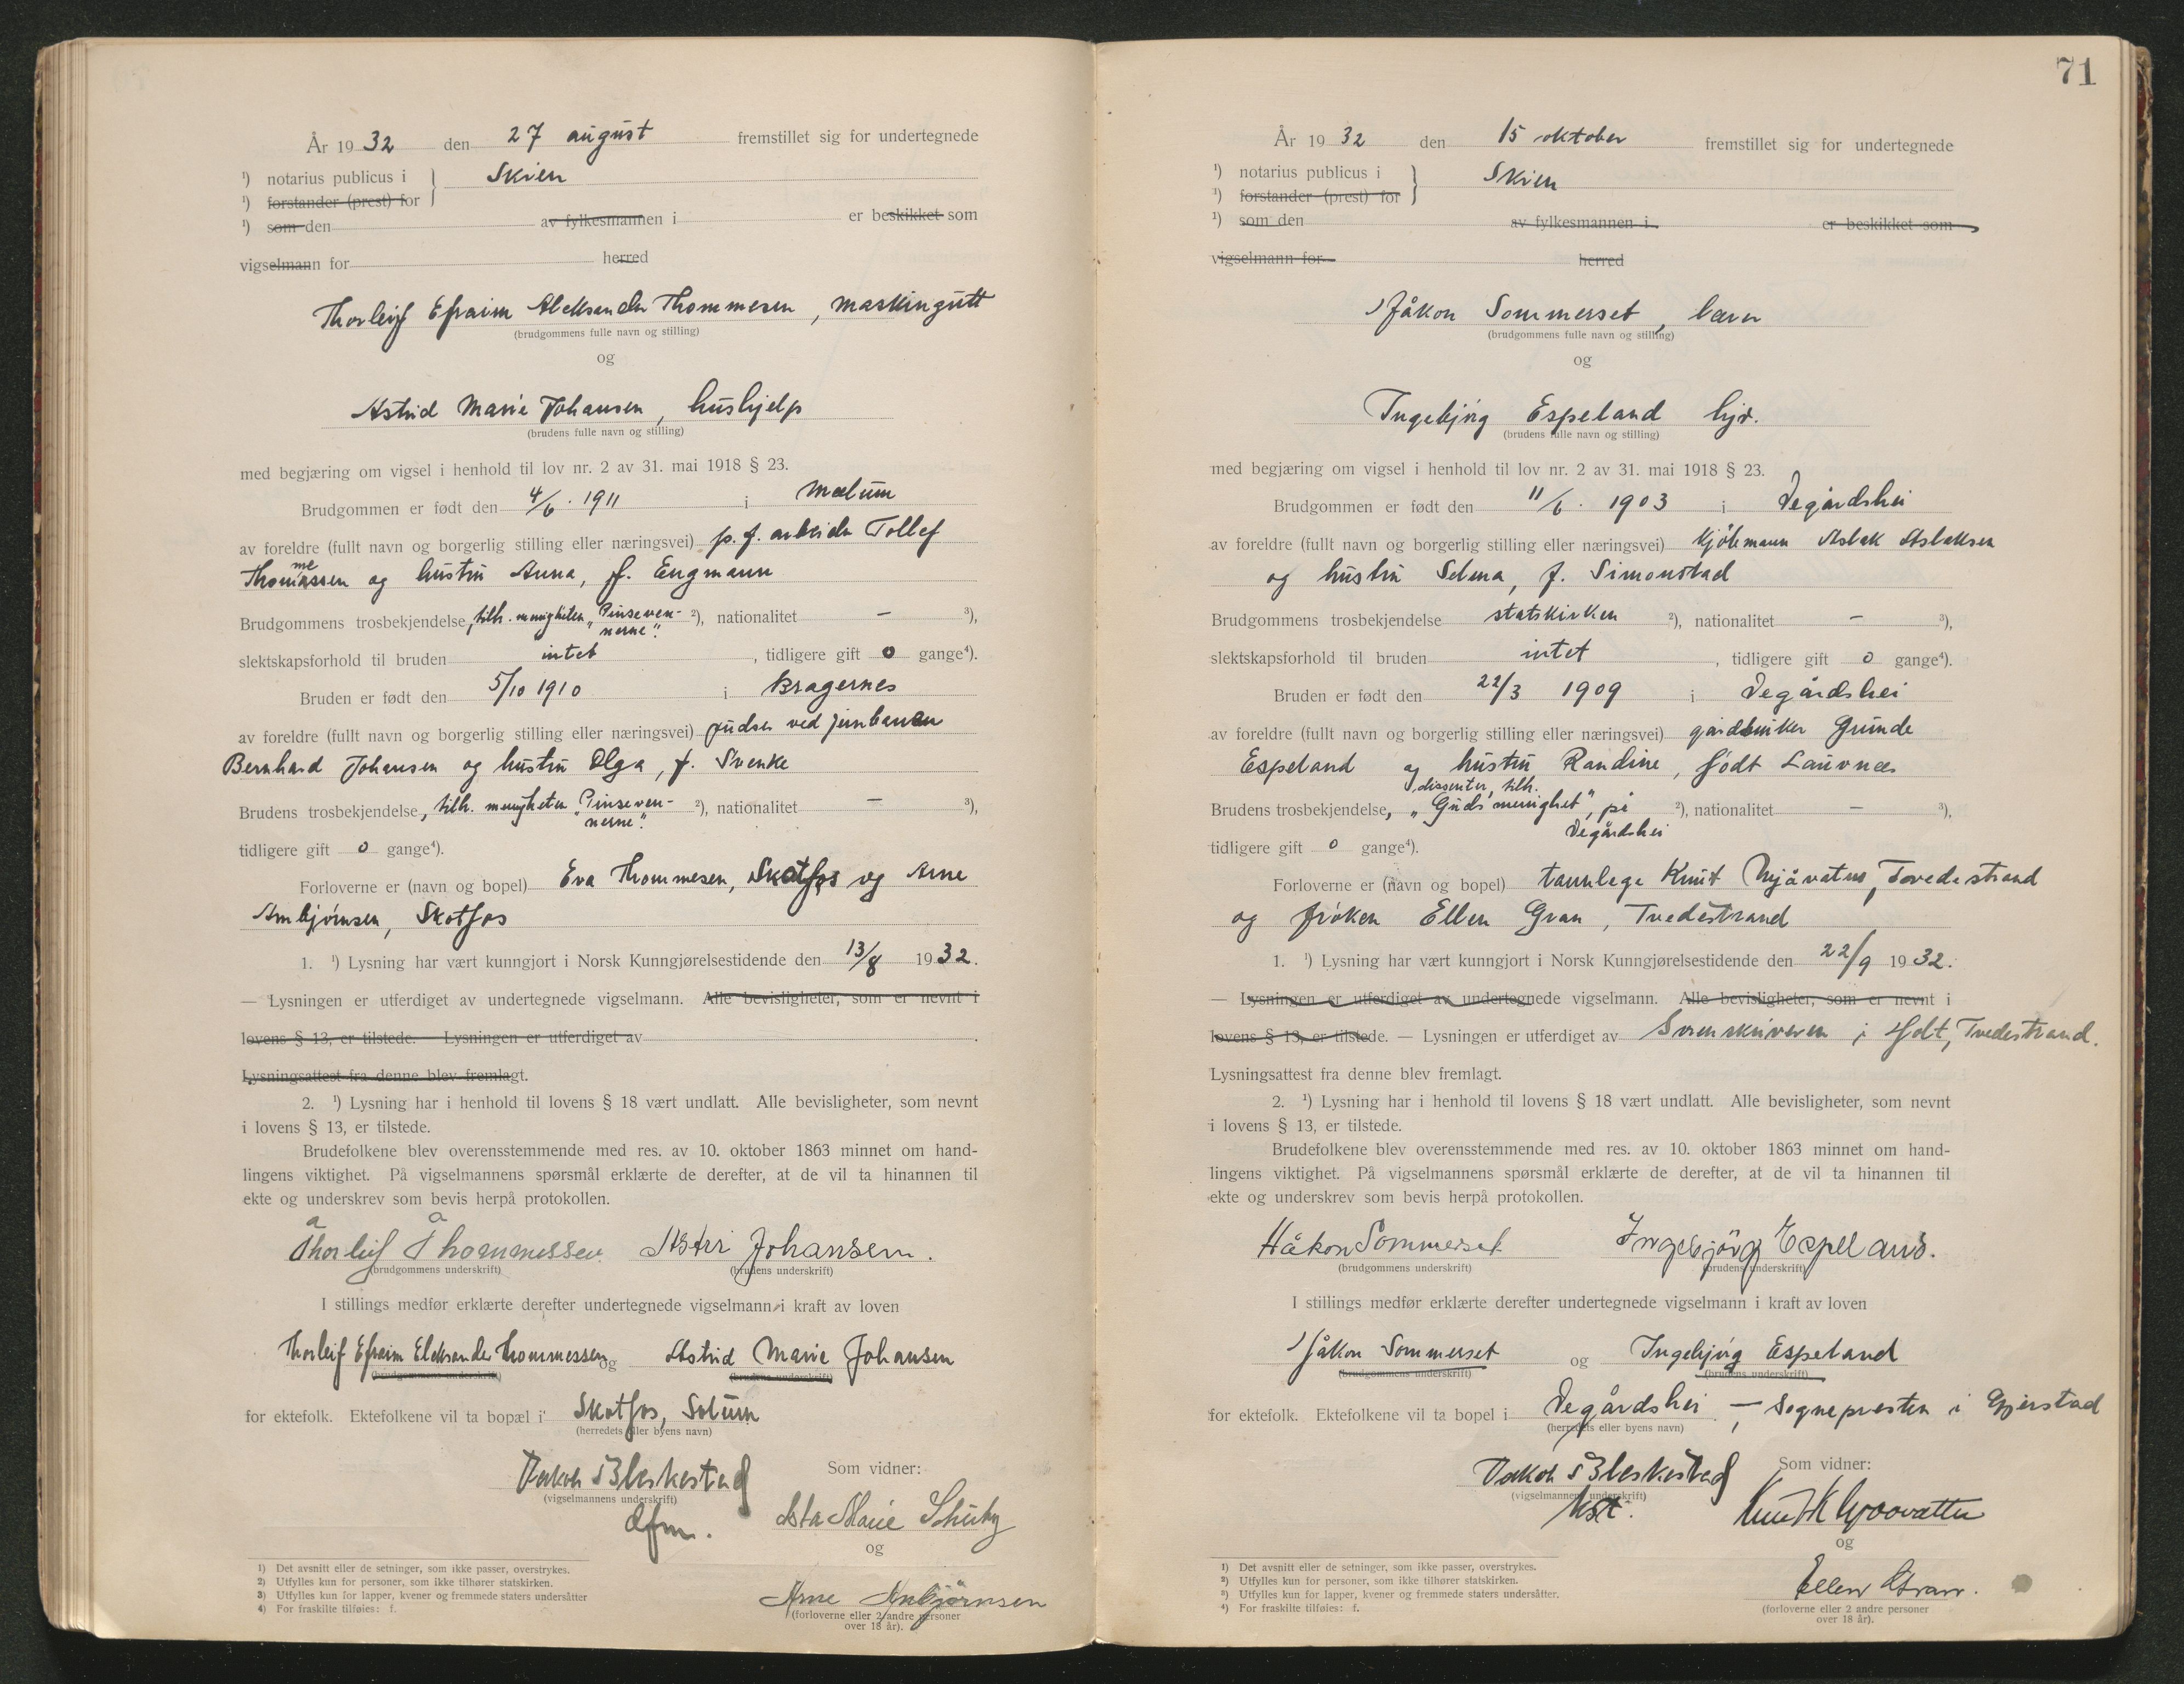 År 1932 den 27 august fremstillet sig for undertegnede
¹) notarius publicus i } Skien
¹) forstander (prest) for
¹) som den av fylkesmannen i er beskikket som
vigselmann for herred
Thorleif Efraim Aleksander Thommesen, maskingutt
(brudgommens fulle navn og stilling)
og
Astrid Marie Johansen, hushjelp
(brudens fulle navn og stilling)
med begjæring om vigsel i henhold til lov nr. 2 av 31. mai 1918 § 23.
Brudgommen er født den 4/6. 1911 i Mælum
av foreldre (fullt navn og borgerlig stilling eller næringsvei) p. f. arbeider Tollef
me
Thomassen og hustru Anna, f. Engmann
Brudgommens trosbekjendelse, tilh. menigheten „Pinseven- ²), nationalitet — ³),
nerne".
slektskapsforhold til bruden intet, tidligere gift 0 gange⁴).
Bruden er født den 5/10 1910 i Bragernes
av foreldre (fullt navn og borgerlig stilling eller næringsvei) pudser ved jernbanen
Bernhard Johansen og hustru Olga, f. Svenke
Brudens trosbekjendelse, tilh. menigheten „Pinseven- ²), nationalitet — ³),
nerne".
tidligere gift 0 gange⁴).
Forloverne er (navn og bopel) Eva Thommesen, Skotfos og Arne
Arnbjørnsen, Skotfos
1. ¹) Lysning har vært kunngjort i Norsk Kunngjørelsestidende den 13/8 1932.
— Lysningen er utferdiget av undertegnede vigselmann. Alle bevisligheter, som er nevnt i
lovens § 13, er tilstede. — Lysningen er utferdiget av .
Lysningsattest fra denne blev fremlagt.
2. ¹) Lysning har i henhold til lovens § 18 vært undlatt. Alle bevisligheter, som nevnt
i lovens § 13, er tilstede.
Brudefolkene blev overensstemmende med res. av 10. oktober 1863 minnet om hand-
lingens viktighet. På vigselmannens spørsmål erklærte de derefter, at de vil ta hinannen til
ekte og underskrev som bevis herpå protokollen.
Thorleif Thommessen Astri Johansen.
(brudgommens underskrift) (brudens underskrift)
I stillings medfør erklærte derefter undertegnede vigselmann i kraft av loven
Thorleif Efraim Eleksander Thommessen og Astrid Marie Johansen
(brudgommens underskrift) (brudens underskrift)
for ektefolk. Ektefolkene vil ta bopæl i Skotfos, Solum
(herredets eller byens navn)
Jakob Bleskestad Som vidner:
(vigselmannens underskrift)
Asta Marie
og
¹) Det avsnitt eller de setninger, som ikke passer, overstrykes.
²) Utfylles kun for personer, som ikke tilhører statskirken.
³) Utfylles kun for lapper, kvener og fremmede staters undersåtter
⁴) For fraskilte tilføies: f.
Arne Arnbjørnsen
(forloverne eller 2 andre personer
over 18 år).
71
År 1932 den 15 oktober fremstillet sig for undertegnede
¹) notarius publicus i } Skien
¹) forstander (prest) for
¹) som den av fylkesmannen i er beskikket som
vigselmann for herred
Håkon Sommerset, lærer
(brudgommens fulle navn og stilling)
og
Ingebjørg Espeland hjv.
(brudens fulle navn og stilling)
med begjæring om vigsel i henhold til lov nr. 2 av 31. mai 1918 § 23.
Brudgommen er født den 11/6. 1903 i Vegårdshei
av foreldre (fullt navn og borgerlig stilling eller næringsvei) kjøbmann Aslak Aslaksen
og hustru Selma, f. Simonstad
Brudgommens trosbekjendelse statskirken ²), nationalitet — ³),
slektskapsforhold til bruden intet, tidligere gift 0 gange⁴).
Bruden er født den 22/3 1909 i Vegårdshei
av foreldre (fullt navn og borgerlig stilling eller næringsvei) gårdbruker Gunde
Espeland og hustru Randine, født Lauvnes
dissenter, tilh.
Brudens trosbekjendelse, „Guds menighet", på ²), nationalitet — ³),
Vegårdshei
tidligere gift 0 gange⁴).
Forloverne er (navn og bopel) tannlege Knut Mjåvatn, Tvedestrand
og frøken Ellen Gran, Tvedestrand
1. ¹) Lysning har vært kunngjort i Norsk Kunngjørelsestidende den 22/9 1932.
— Lysningen er utferdiget av undertegnede vigselmann. Alle bevisligheter, som er nevnt i
lovens § 13, er tilstede. — Lysningen er utferdiget av Sorenskriveren i Holt, Tvedestrand.
Lysningsattest fra denne blev fremlagt.
2. ¹) Lysning har i henhold til lovens § 18 vært undlatt. Alle bevisligheter, som nevnt
i lovens § 13, er tilstede.
Brudefolkene blev overensstemmende med res. av 10. oktober 1863 minnet om hand-
lingens viktighet. På vigselmannens spørsmål erklærte de derefter, at de vil ta hinannen til
ekte og underskrev som bevis herpå protokollen.
Håkon Sommerset Ingebjørg Espeland.
(brudgommens underskrift) (brudens underskrift)
I stillings medfør erklærte derefter undertegnede vigselmann i kraft av loven
Håkon Sommerset og Ingebjørg Espeland
(brudgommens underskrift) (brudens underskrift)
for ektefolk. Ektefolkene vil ta bopel i Vegårdshei — Sognepresten i Gjerstad
(herredets eller byens navn)
Jakob Bleskestad Som vidner:
(vigselmannens underskrift)
Kst.
og
¹) Det avsnitt eller de setninger, som ikke passer, overstrykes.
²) Utfylles kun for personer, som ikke tilhører statskirken.
³) Utfylles kun for lapper, kvener og fremmede staters undersåtter.
⁴) For fraskilte tilføies: f.
Ellen Gran.
(forloverne eller 2 andre personer
over 18 år).